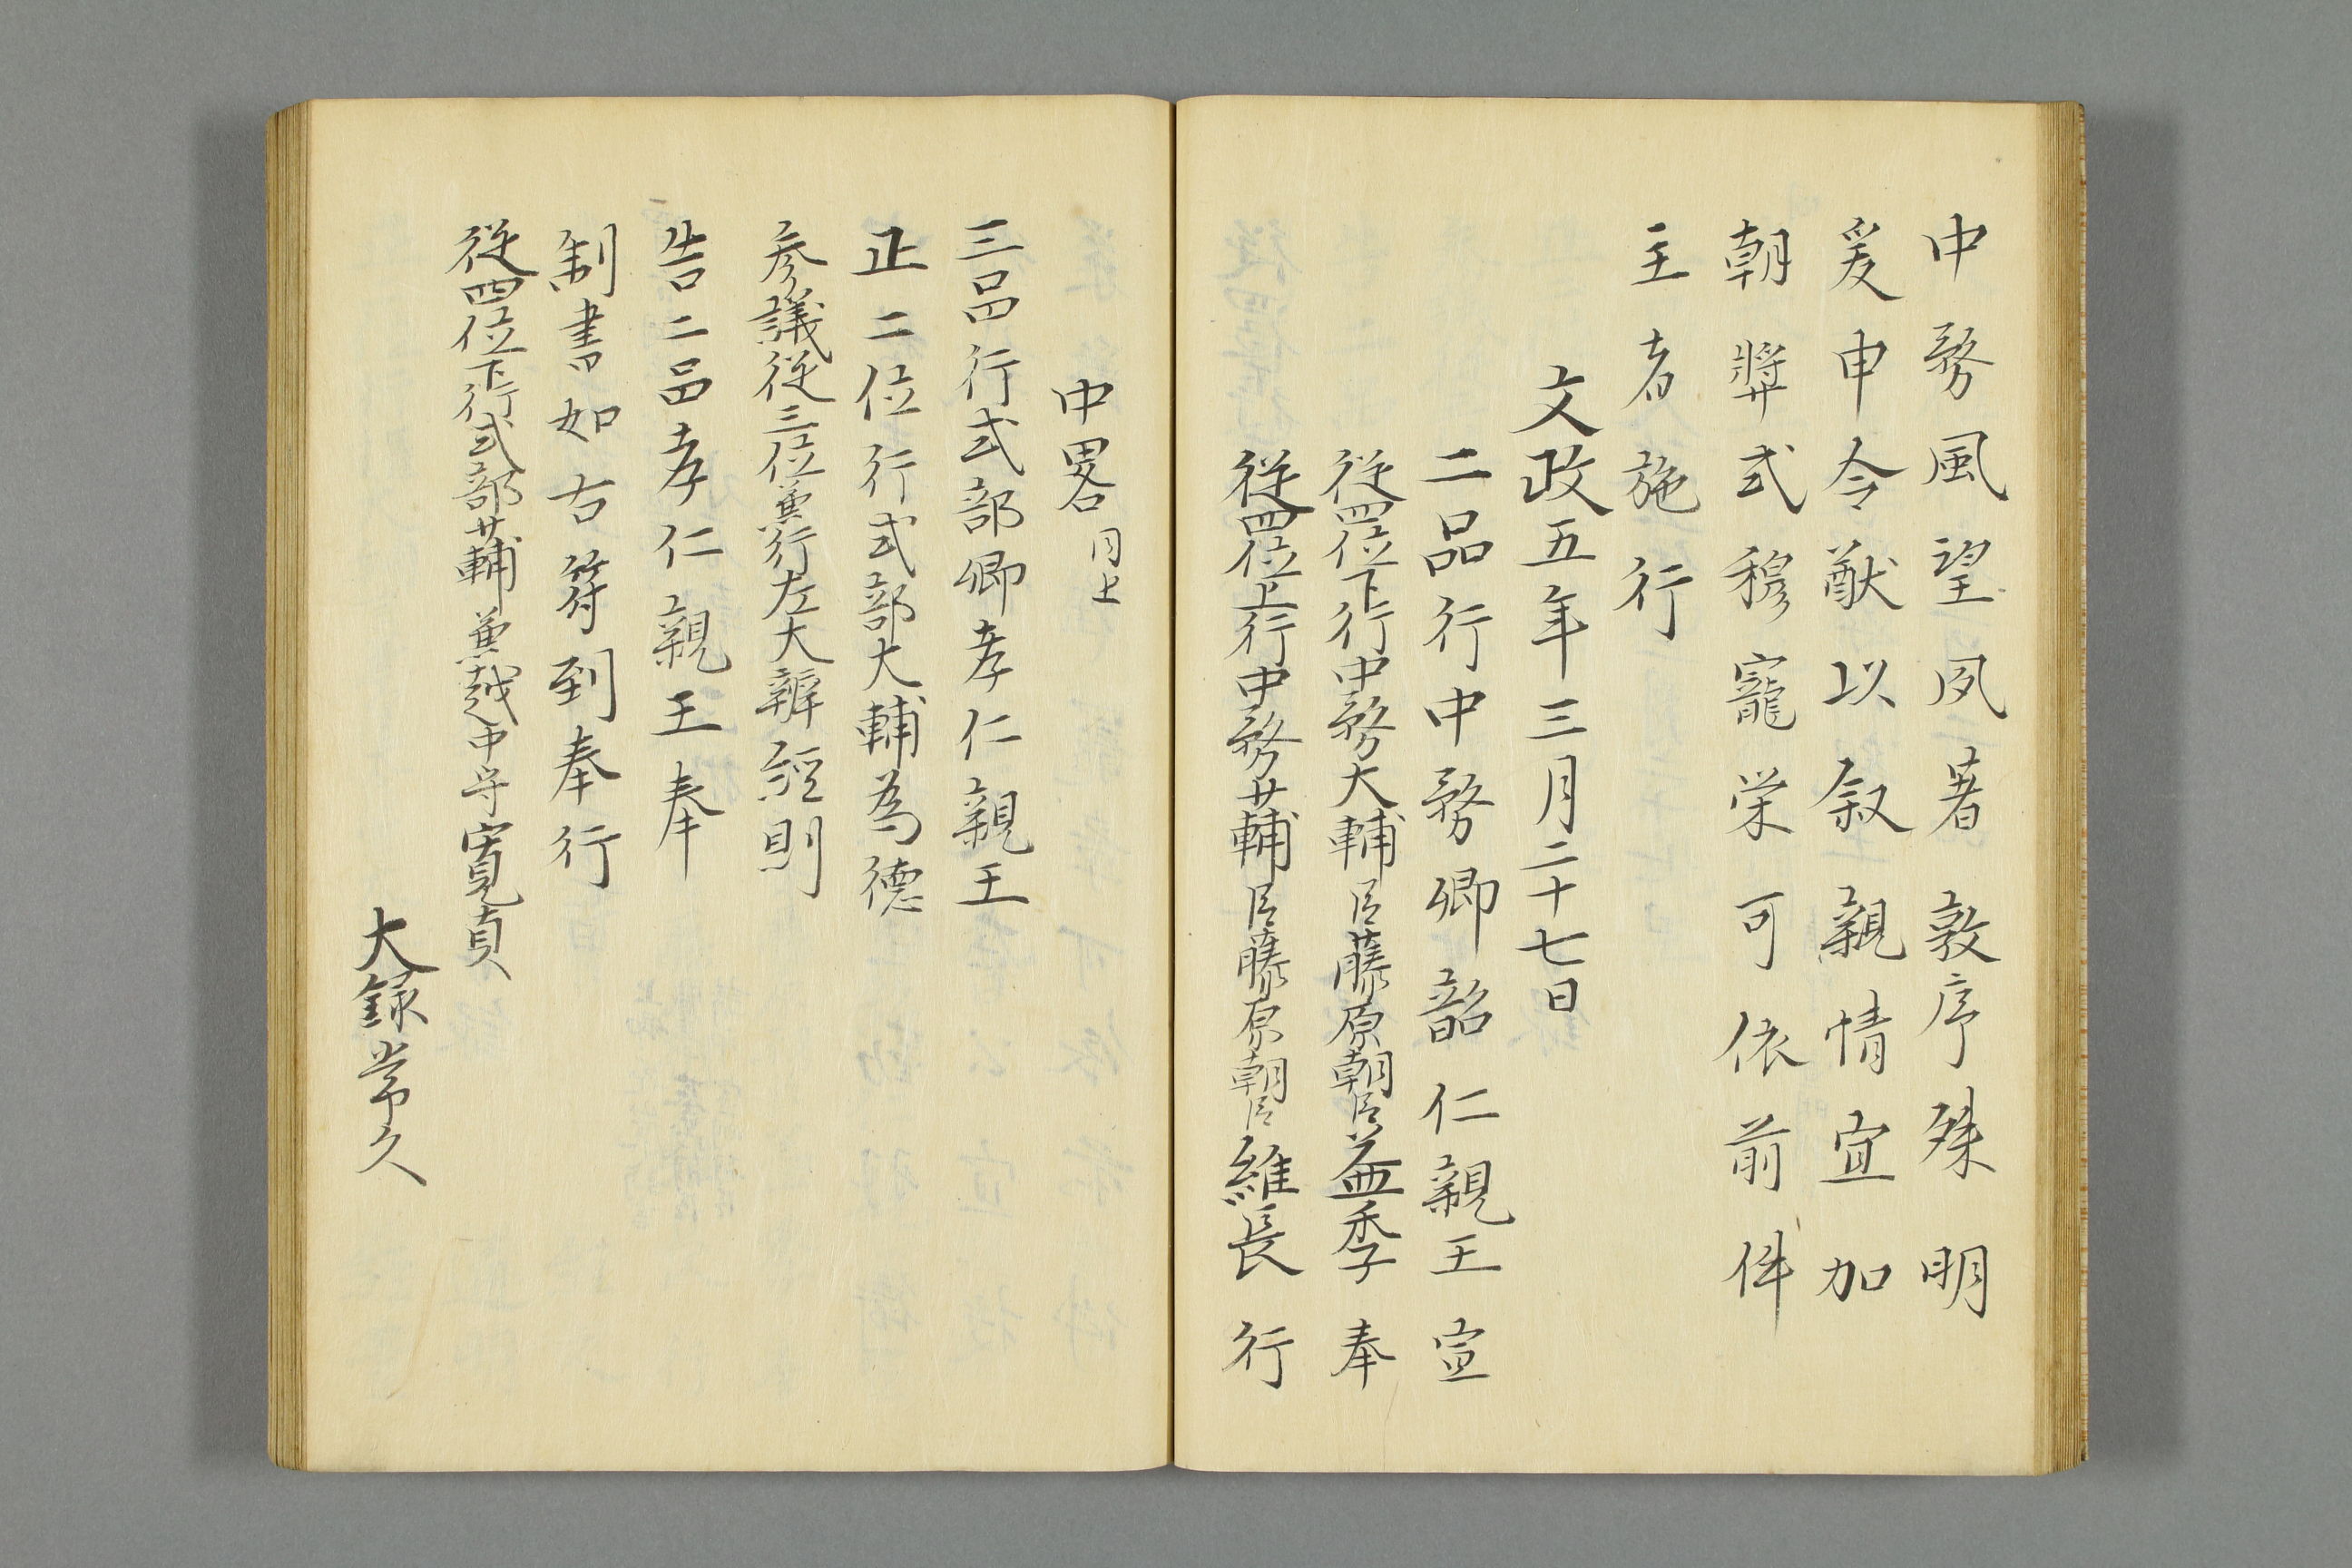 中務風望夙著敦序殊明
爰申令猷以叙親情宜加
朝奨式穆寵栄可依前件
主者施行
文政五年三月二十七日
二品行中務卿韶仁親王宣
従四位下行中務大輔臣藤原朝臣益季奉
従四位上行中務少輔臣藤原朝臣維長行
中畧同上
三品行式部卿孝仁親王
正二位行式部大輔為徳
参議従三位兼行左大辨経則
告二品孝仁親王奉
制書如右符到奉行
従四位下行式部少輔兼越中守寛貞
大録常久